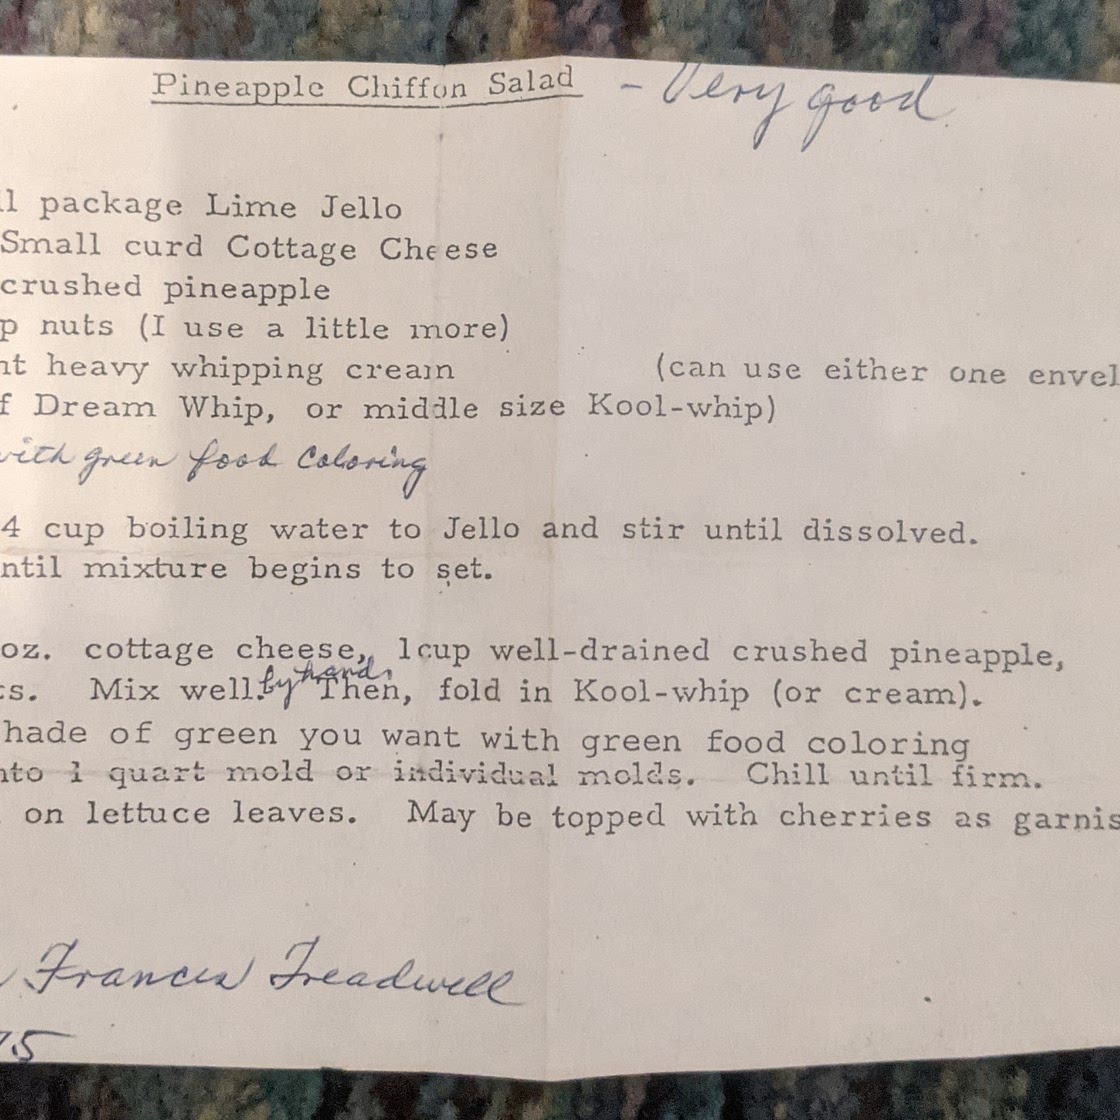 Pineapple Chiffon Salad - Very good
ll package Lime Jello
Small curd Cottage Cheese
crushed pineapple
p nuts (I use a little more)
nt heavy whipping cream (can use either one envel
f Dream Whip, or middle size Kool-whip)
with green food coloring
4 cup boiling water to Jello and stir until dissolved.
ntil mixture begins to set.
oz. cottage cheese, 1cup well-drained crushed pineapple,
ts. Mix well by hand. Then, fold in Kool-whip (or cream).
hade of green you want with green food coloring
nto 1 quart mold or individual molds. Chill until firm.
on lettuce leaves. May be topped with cherries as garnis
Frances Treadwell
75